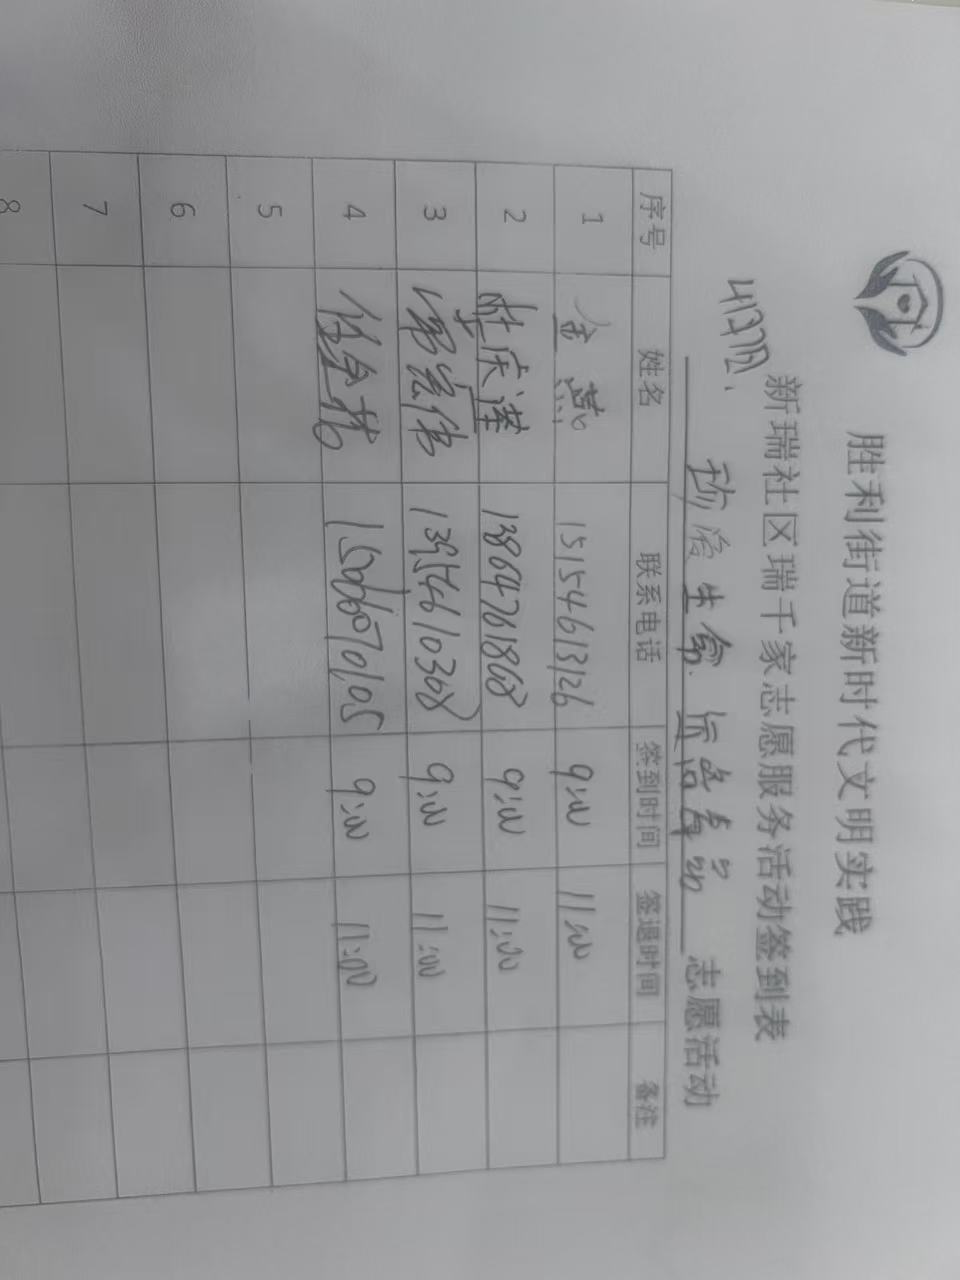 胜利街道新时代文明实践
新瑞社区瑞千家志愿服务活动签到表
珍爱生命 远离毒品 志愿活动
序号 姓名 联系电话 签到时间 签退时间 备注
1 金燕 15154613126 9:00 11:00
2 杜庆莲 13864761868 9:00 11:00
3 13954610368 9:00 11:00
4 9:00 11:00
5
6
7
8